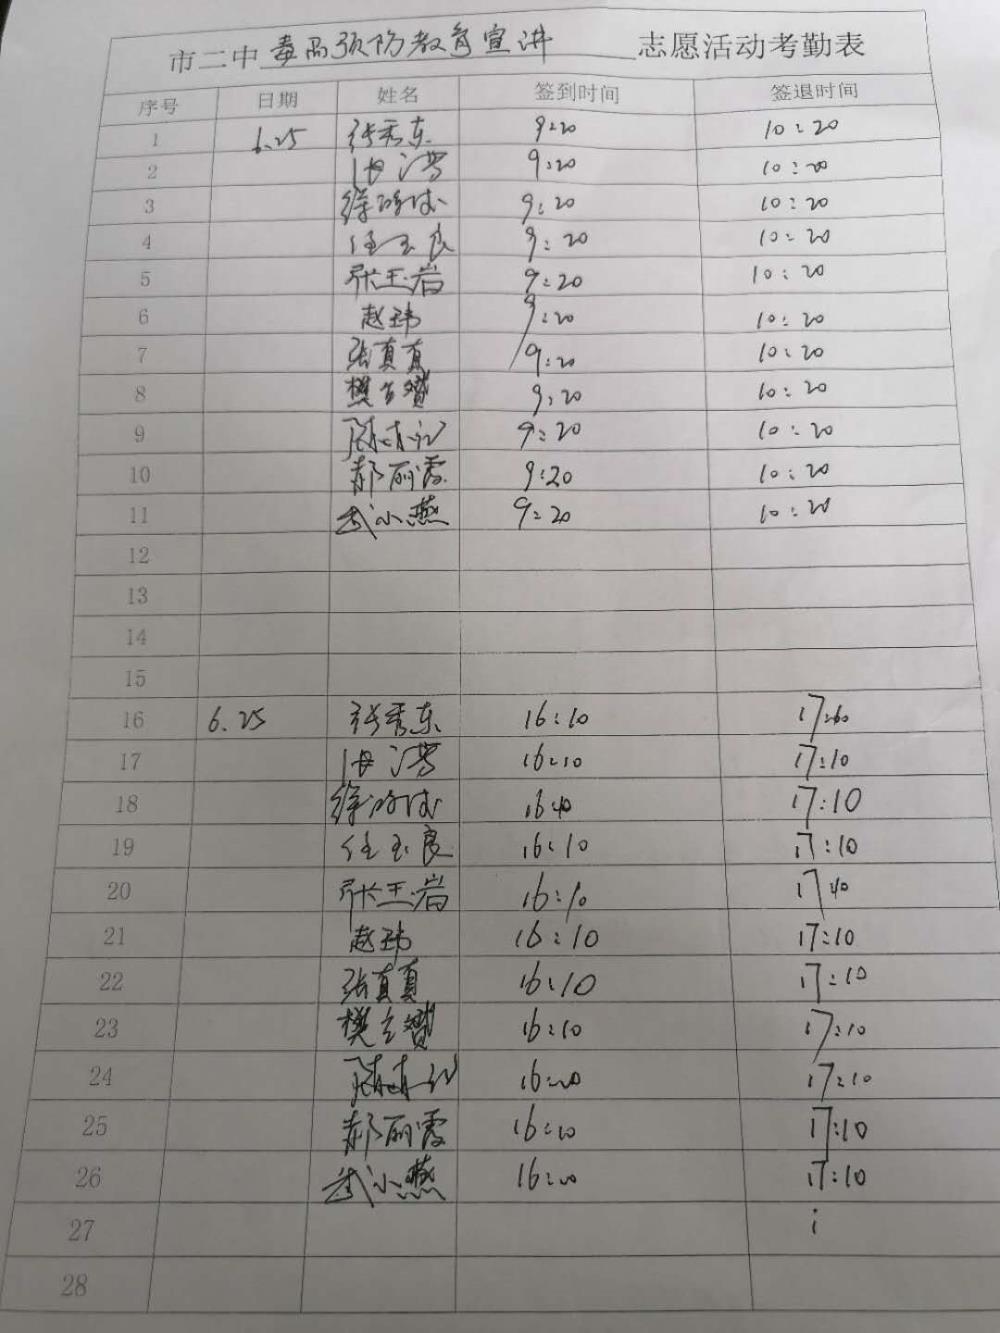 市二中毒品预防教育宣讲 志愿活动考勤表
序号 日期 姓名 签到时间 签退时间
1 6.25 张秀东 9:20 10:20
2 9:20 10:20
3 徐 9:20 10:20
4 任玉良 9:20 10:20
5 张玉岩 9:20 10:20
6 赵玮 9:20 10:20
7 张真真 9:20 10:20
8 樊 9:20 10:20
9 9:20 10:20
10 郝丽霞 9:20 10:20
11 武小燕 9:20 10:20
12
13
14
15
16 6.25 张秀东 16:10
17 16:10 17:10
18 徐 17:10
19 任玉良 16:10 17:10
20 张玉岩 16:10
21 赵玮 16:10 17:10
22 张真真 16:10 17:10
23 樊 16:10 17:10
24 17:10
25 郝丽霞 16:10 17:10
26 武小燕 17:10
27
28